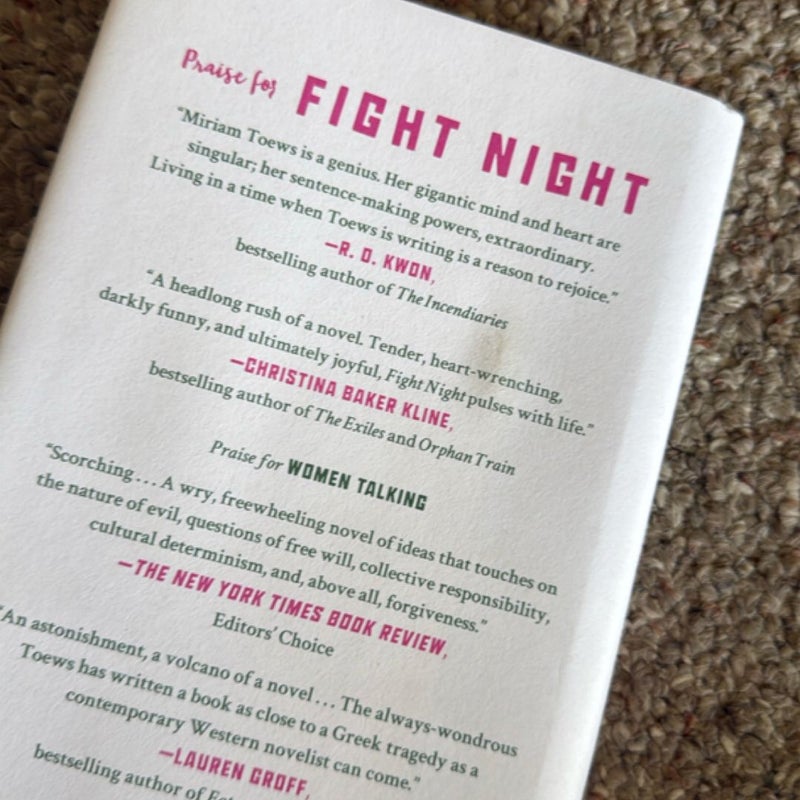 Praise for FIGHT NIGHT
“Miriam Toews is a genius. Her gigantic mind and heart are
singular; her sentence-making powers, extraordinary.
Living in a time when Toews is writing is a reason to rejoice.”
—R. O. KWON,
bestselling author of The Incendiaries
“A headlong rush of a novel. Tender, heart-wrenching,
darkly funny, and ultimately joyful, Fight Night pulses with life.”
—CHRISTINA BAKER KLINE,
bestselling author of The Exiles and Orphan Train
Praise for WOMEN TALKING
“Scorching . . . A wry, freewheeling novel of ideas that touches on
the nature of evil, questions of free will, collective responsibility,
cultural determinism, and, above all, forgiveness.”
—THE NEW YORK TIMES BOOK REVIEW,
Editors’ Choice
“An astonishment, a volcano of a novel . . . The always-wondrous
Toews has written a book as close to a Greek tragedy as a
contemporary Western novelist can come.”
—LAUREN GROFF,
bestselling author of